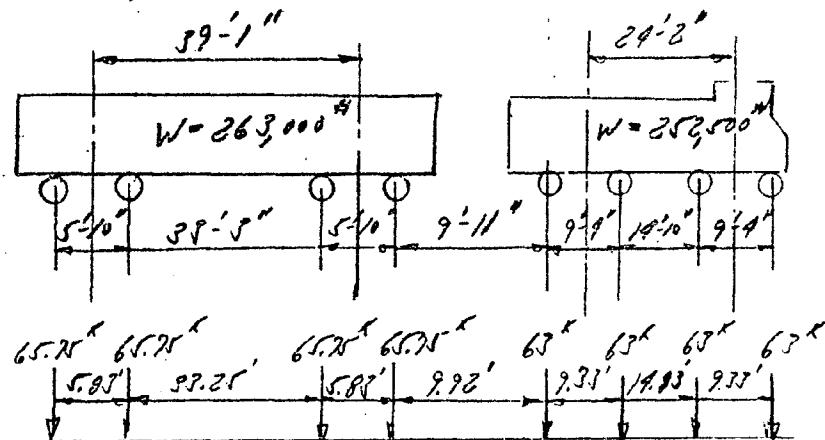 39'-1" 24'-2"
W=263,000# W=252,500#
5'-10" 33'-3" 5'-10" 9'-11" 9'-4" 14'-10" 9'-4"
65.75K 65.75K 65.75K 65.75K 63K 63K 63K 63K
5.83' 33.25' 5.83' 9.92' 9.33' 14.83' 9.33'